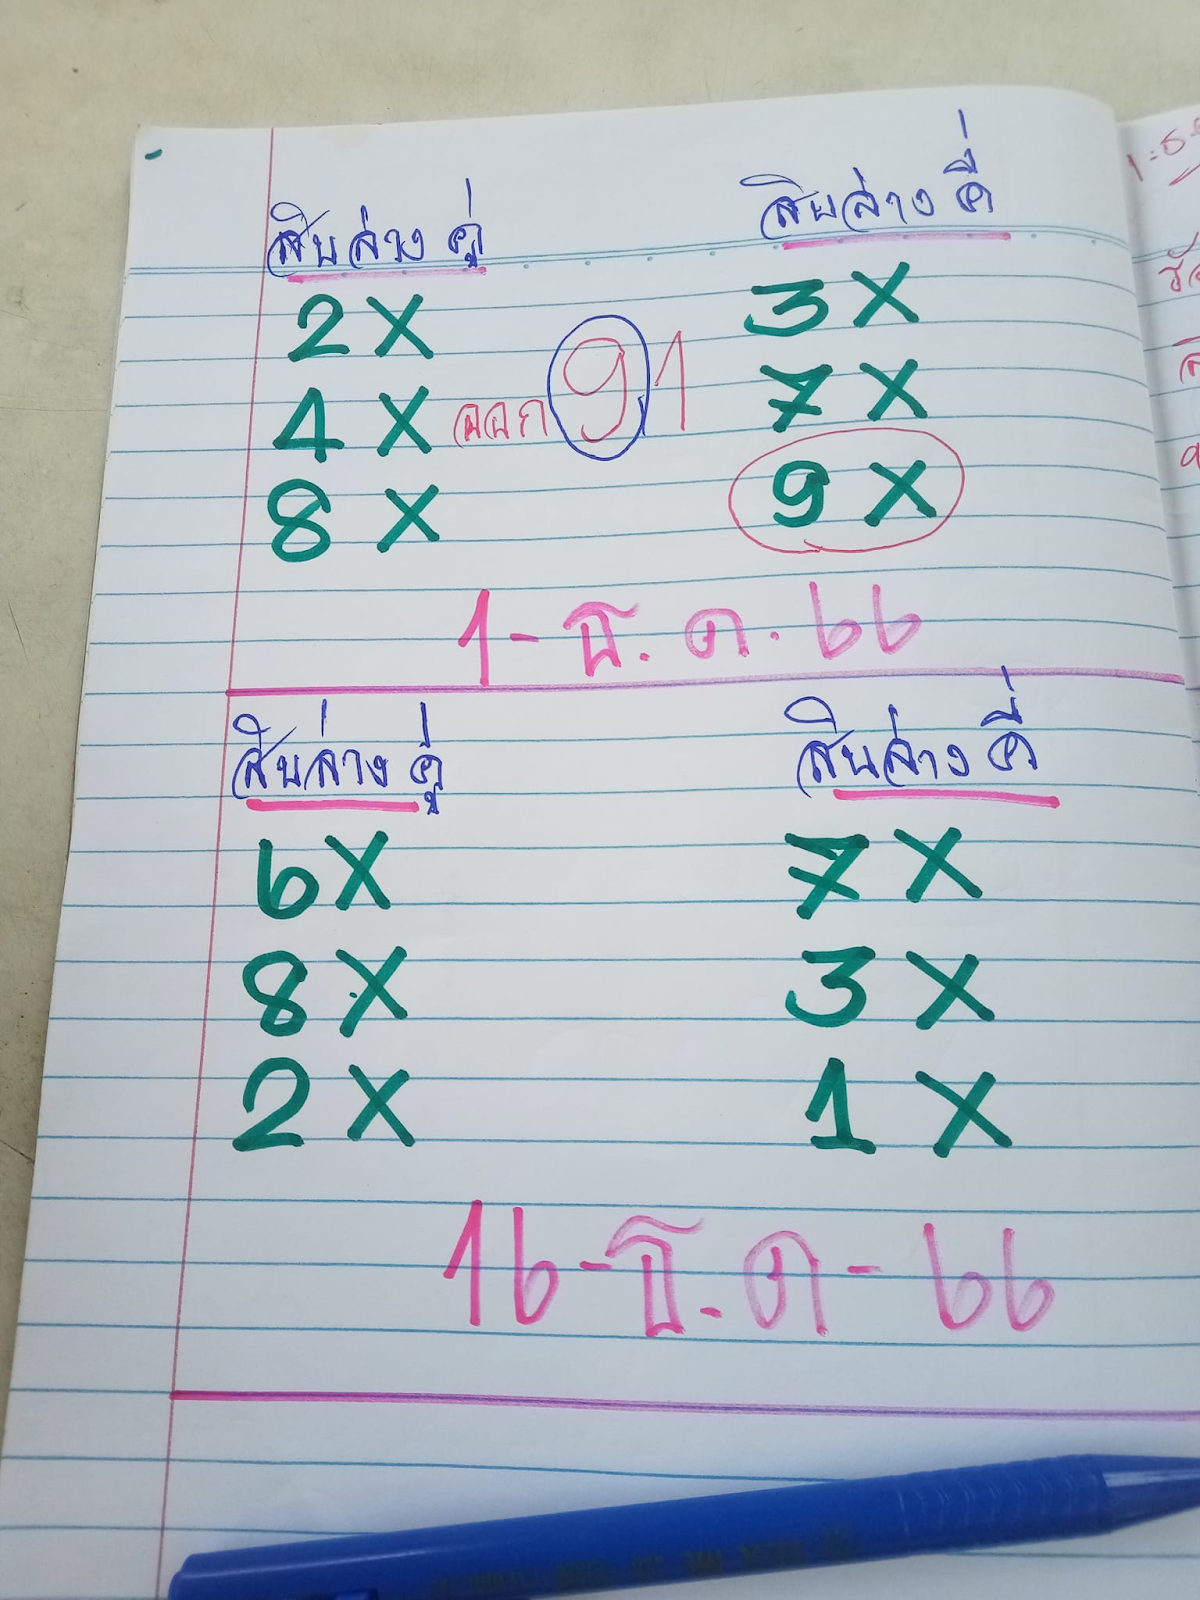 สิบล่าง คู่
สิบล่าง คี่
2X
3X
4X
ออก 91
7X
8X
9X
1-ธ.ค.66
สิบล่าง คู่
สิบล่าง คี่
6X
7X
8X
3X
2X
1X
16-ธ.ค-66